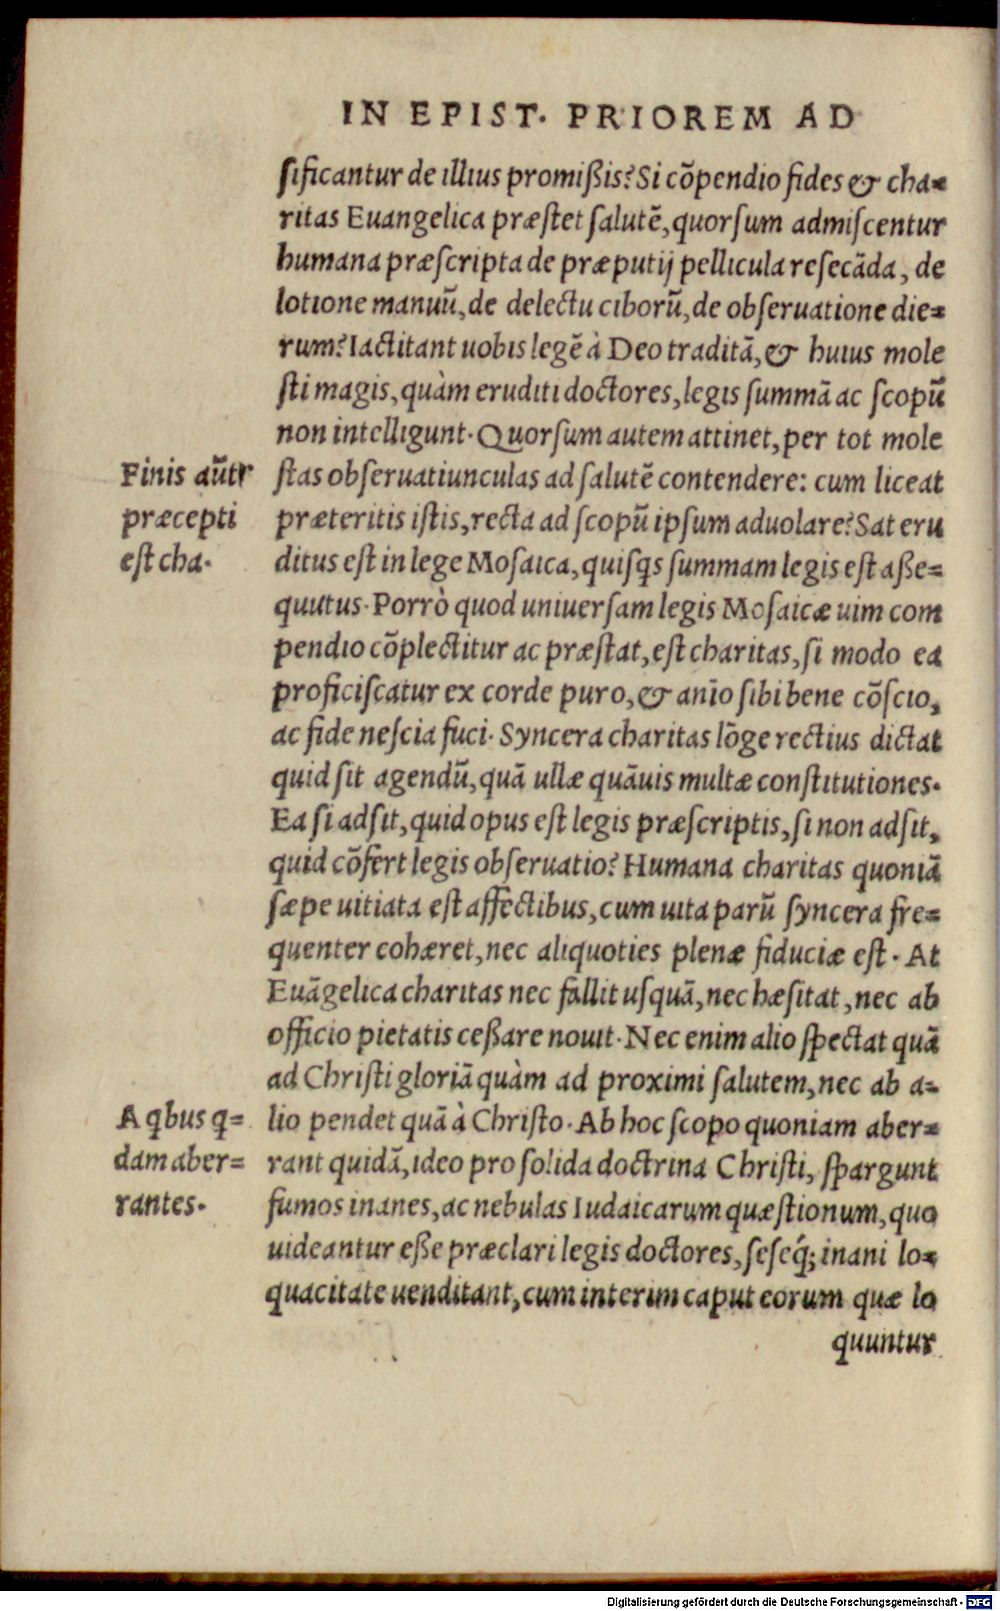 IN EPIST. PRIOREM AD
sificantur de illius promißis? Si cõpendio fides & cha=
ritas Euangelica præstet salutẽ, quorsum admiscentur
humana præscripta de præputij pellicula resecãda, de
lotione manuũ, de delectu ciborũ, de obseruatione die=
rum? Iactitant uobis legẽ à Deo traditã, & huius mole
sti magis, quàm eruditi doctores, legis summã ac scopũ
non intelligunt. Quorsum autem attinet, per tot mole
Finis aũt
præcepti
est cha.
stas obseruatiunculas ad salutẽ contendere: cum liceat
præteritis istis, recta ad scopũ ipsum aduolare? Sat eru
ditus est in lege Mosaica, quisqs summam legis est aße=
quutus. Porrò quod uniuersam legis Mosaicæ uim com
pendio cõplectitur ac præstat, est charitas, si modo ea
proficiscatur ex corde puro, & anĩo sibi bene cõscio,
ac fide nescia fuci. Syncera charitas lõge rectius dictat
quid sit agendũ, quã ullæ quãuis multæ constitutiones.
Ea si adsit, quid opus est legis præscriptis, si non adsit,
quid cõfert legis obseruatio? Humana charitas quoniã
sæpe uitiata est affectibus, cum uita parũ syncera fre=
quenter cohæret, nec aliquoties plenæ fiduciæ est. At
Euãgelica charitas nec fallit usquã, nec hæsitat, nec ab
officio pietatis ceßare nouit. Nec enim alio spectat quã
ad Christi gloriã quàm ad proximi salutem, nec ab a=
A qbus q=
dam aber=
rantes.
lio pendet quã à Christo. Ab hoc scopo quoniam aber=
rant quidã, ideo pro solida doctrina Christi, spargunt
fumos inanes, ac nebulas Iudaicarum quæstionum, quo
uideantur eße præclari legis doctores, seseq́; inani lo=
quacitate uenditant, cum interim caput eorum quæ lo
quuntur
Digitalisierung gefördert durch die Deutsche Forschungsgemeinschaft - DFG